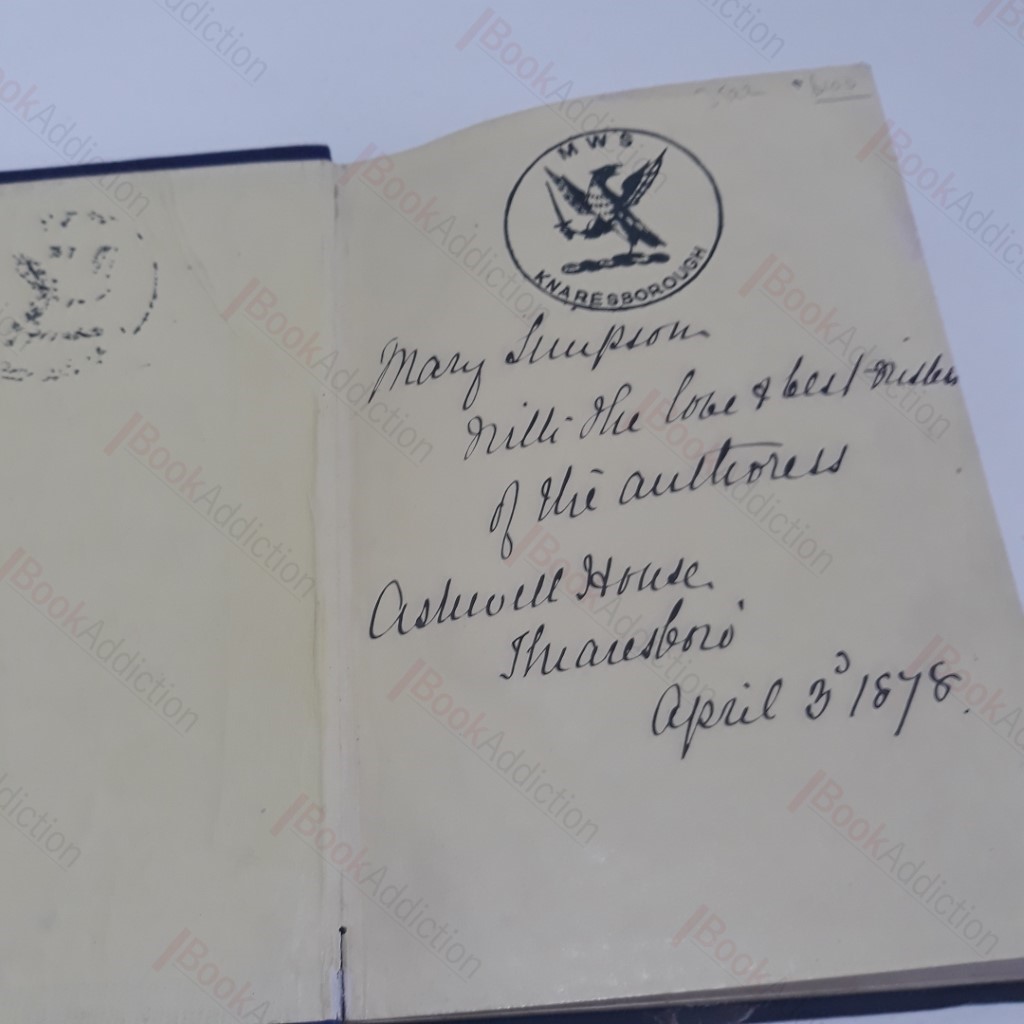 MWS
KNARESBOROUGH
Mary Simpson
With the love & best wishes
of the authoress
Ashwell House.
Knaresboro'
April 3d 1878.
BookAddiction